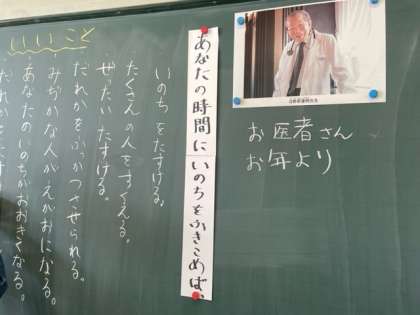 お医者さん
お年より
あなたの時間にいのちをふきこめば、
いのちをたすける。
たくさんの人をすくえる。
ぜったいたすける。
だれかをふかつさせられる。
みぢかな人がえがおになる。
あなたのいのちがおおきくなる。
いいこと